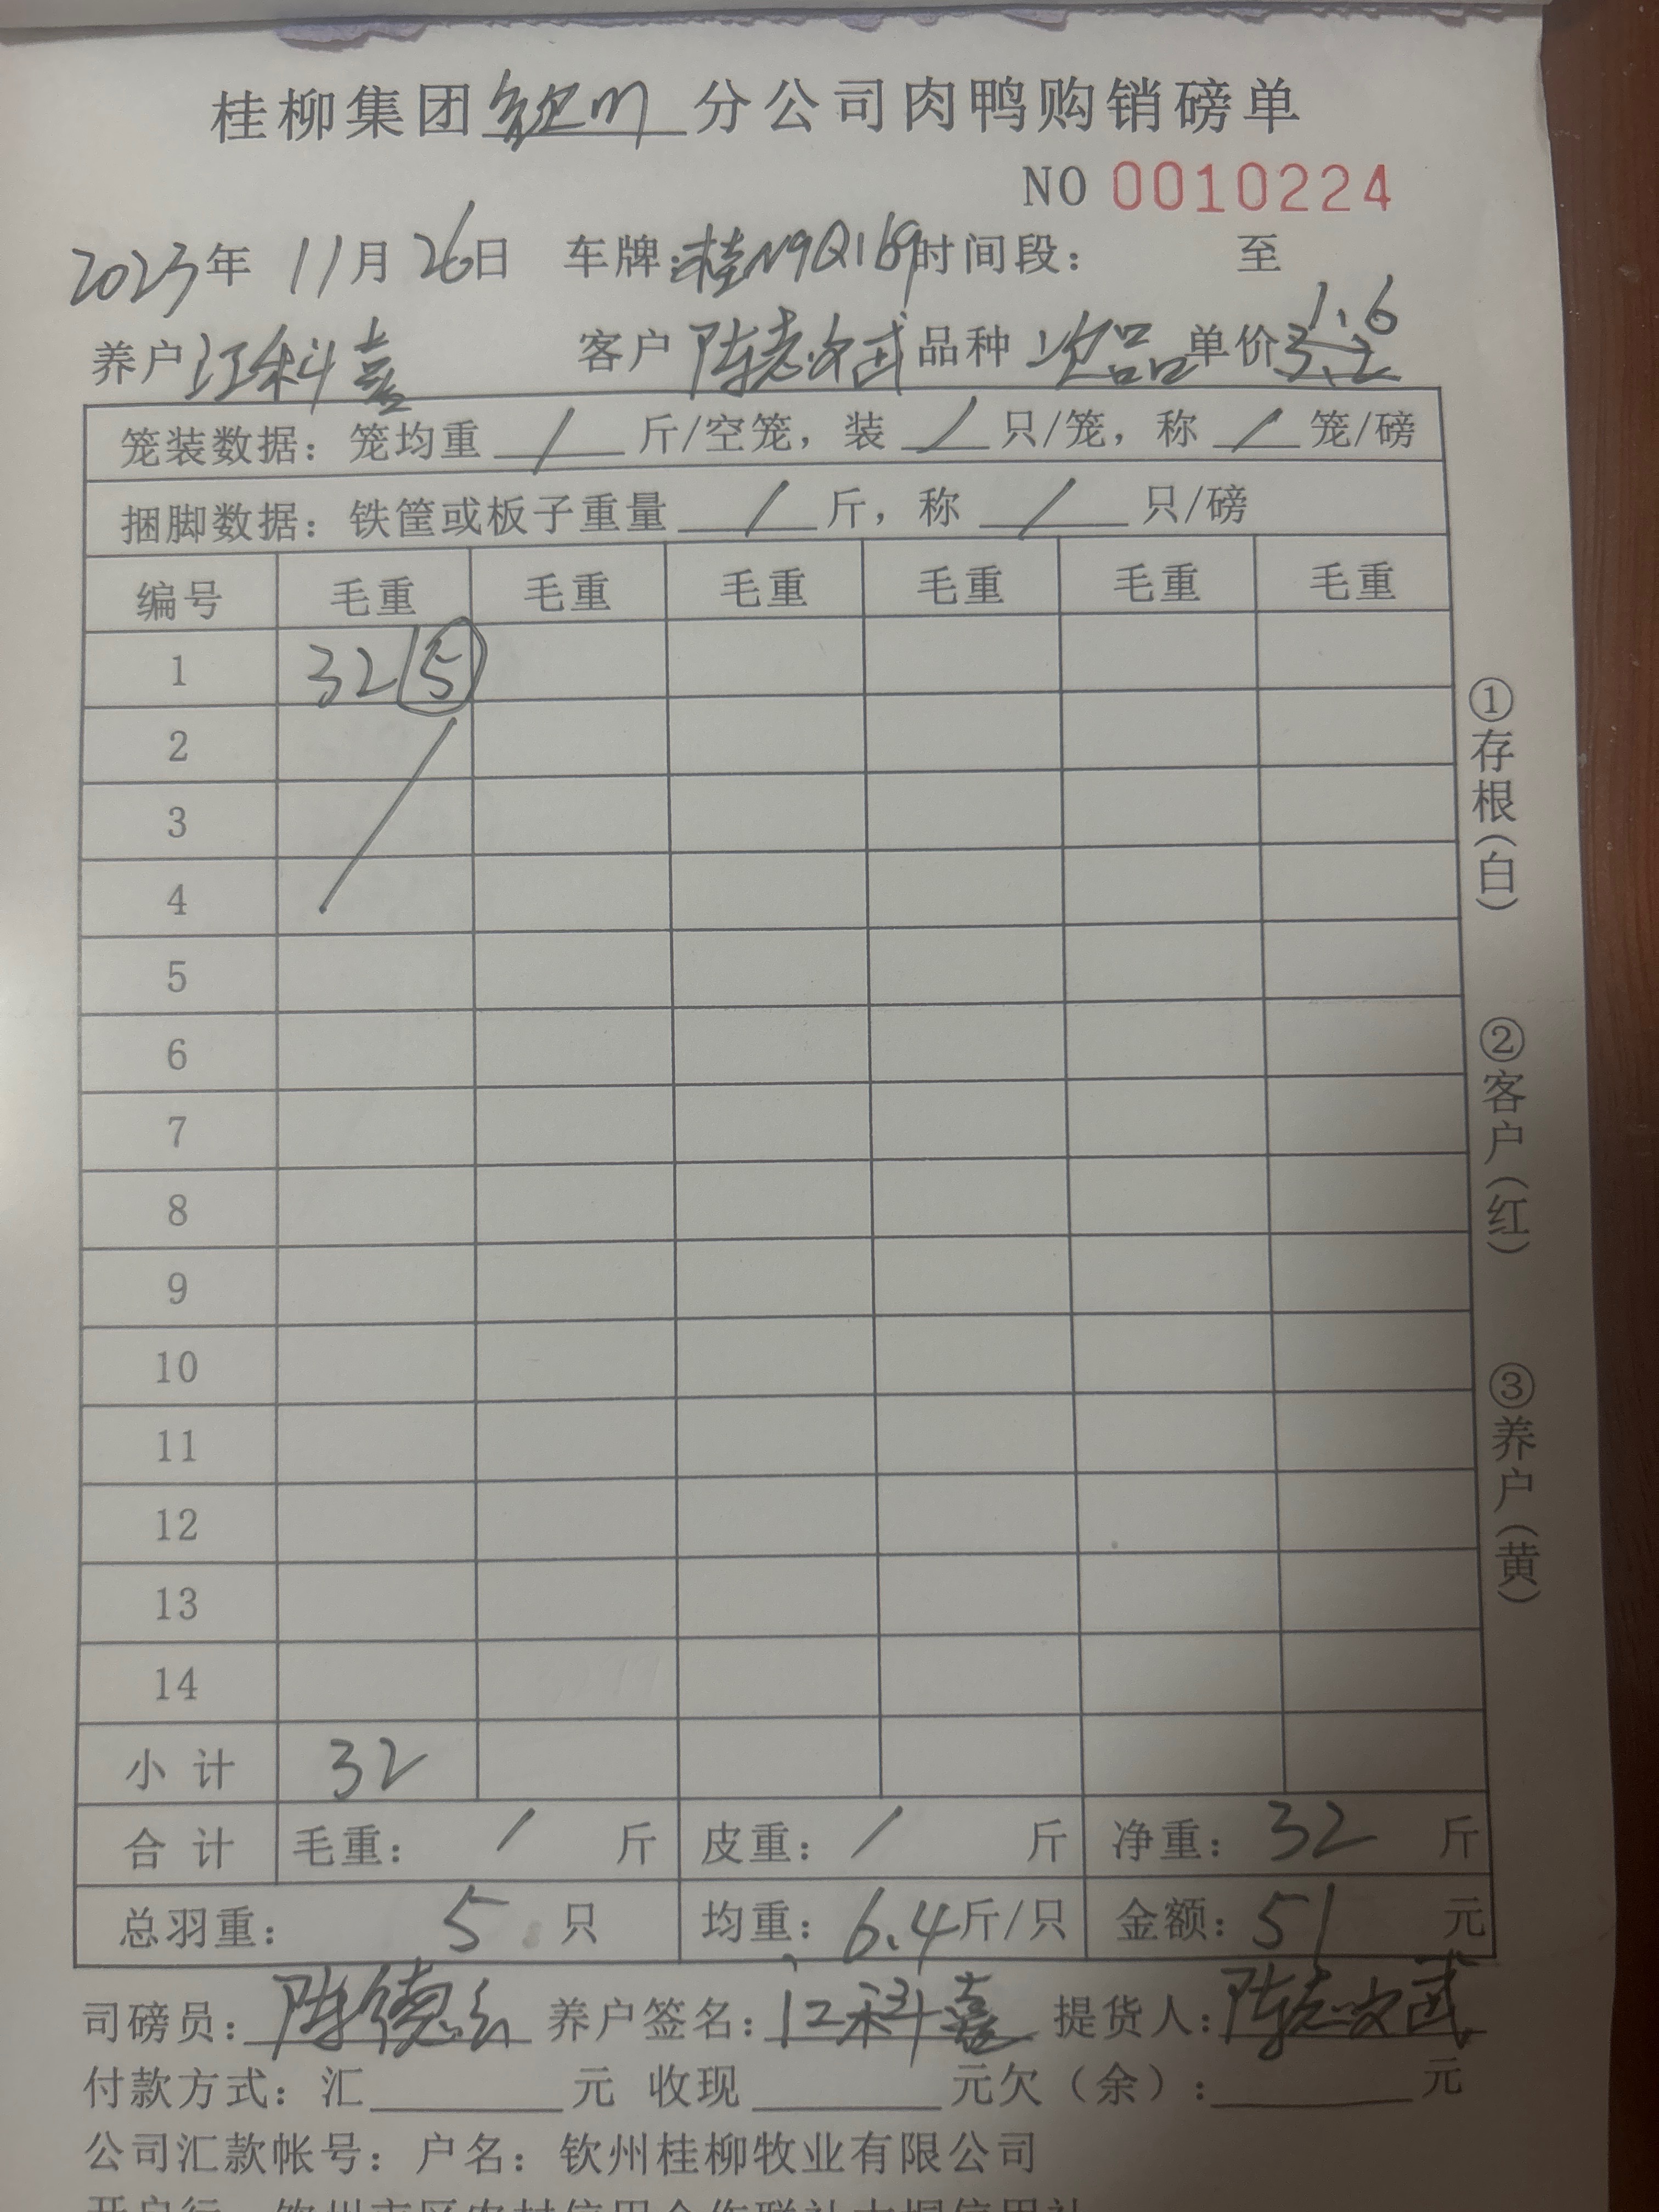 桂柳集团钦州分公司肉鸭购销磅单
NO 0010224
2023年 11月 26日 车牌:桂N9Q169 时间段: 至
养户 江科喜 客户 陈志斌 品种 次品 单价 1.6
笼装数据: 笼均重 / 斤/空笼, 装 / 只/笼, 称 / 笼/磅
捆脚数据: 铁筐或板子重量 / 斤, 称 / 只/磅
编号 毛重 毛重 毛重 毛重 毛重 毛重
1 32 5
2
3
4
5
6
7
8
9
10
11
12
13
14
小计 32
合计 毛重: / 斤 皮重: / 斤 净重: 32 斤
总羽重: 5 只 均重: 6.4 斤/只 金额: 51 元
司磅员: 陈德 养户签名: 江科喜 提货人: 陈志斌
付款方式: 汇 元 收现 元欠(余): 元
公司汇款帐号: 户名: 钦州桂柳牧业有限公司
①存根(白)
②客户(红)
③养户(黄)